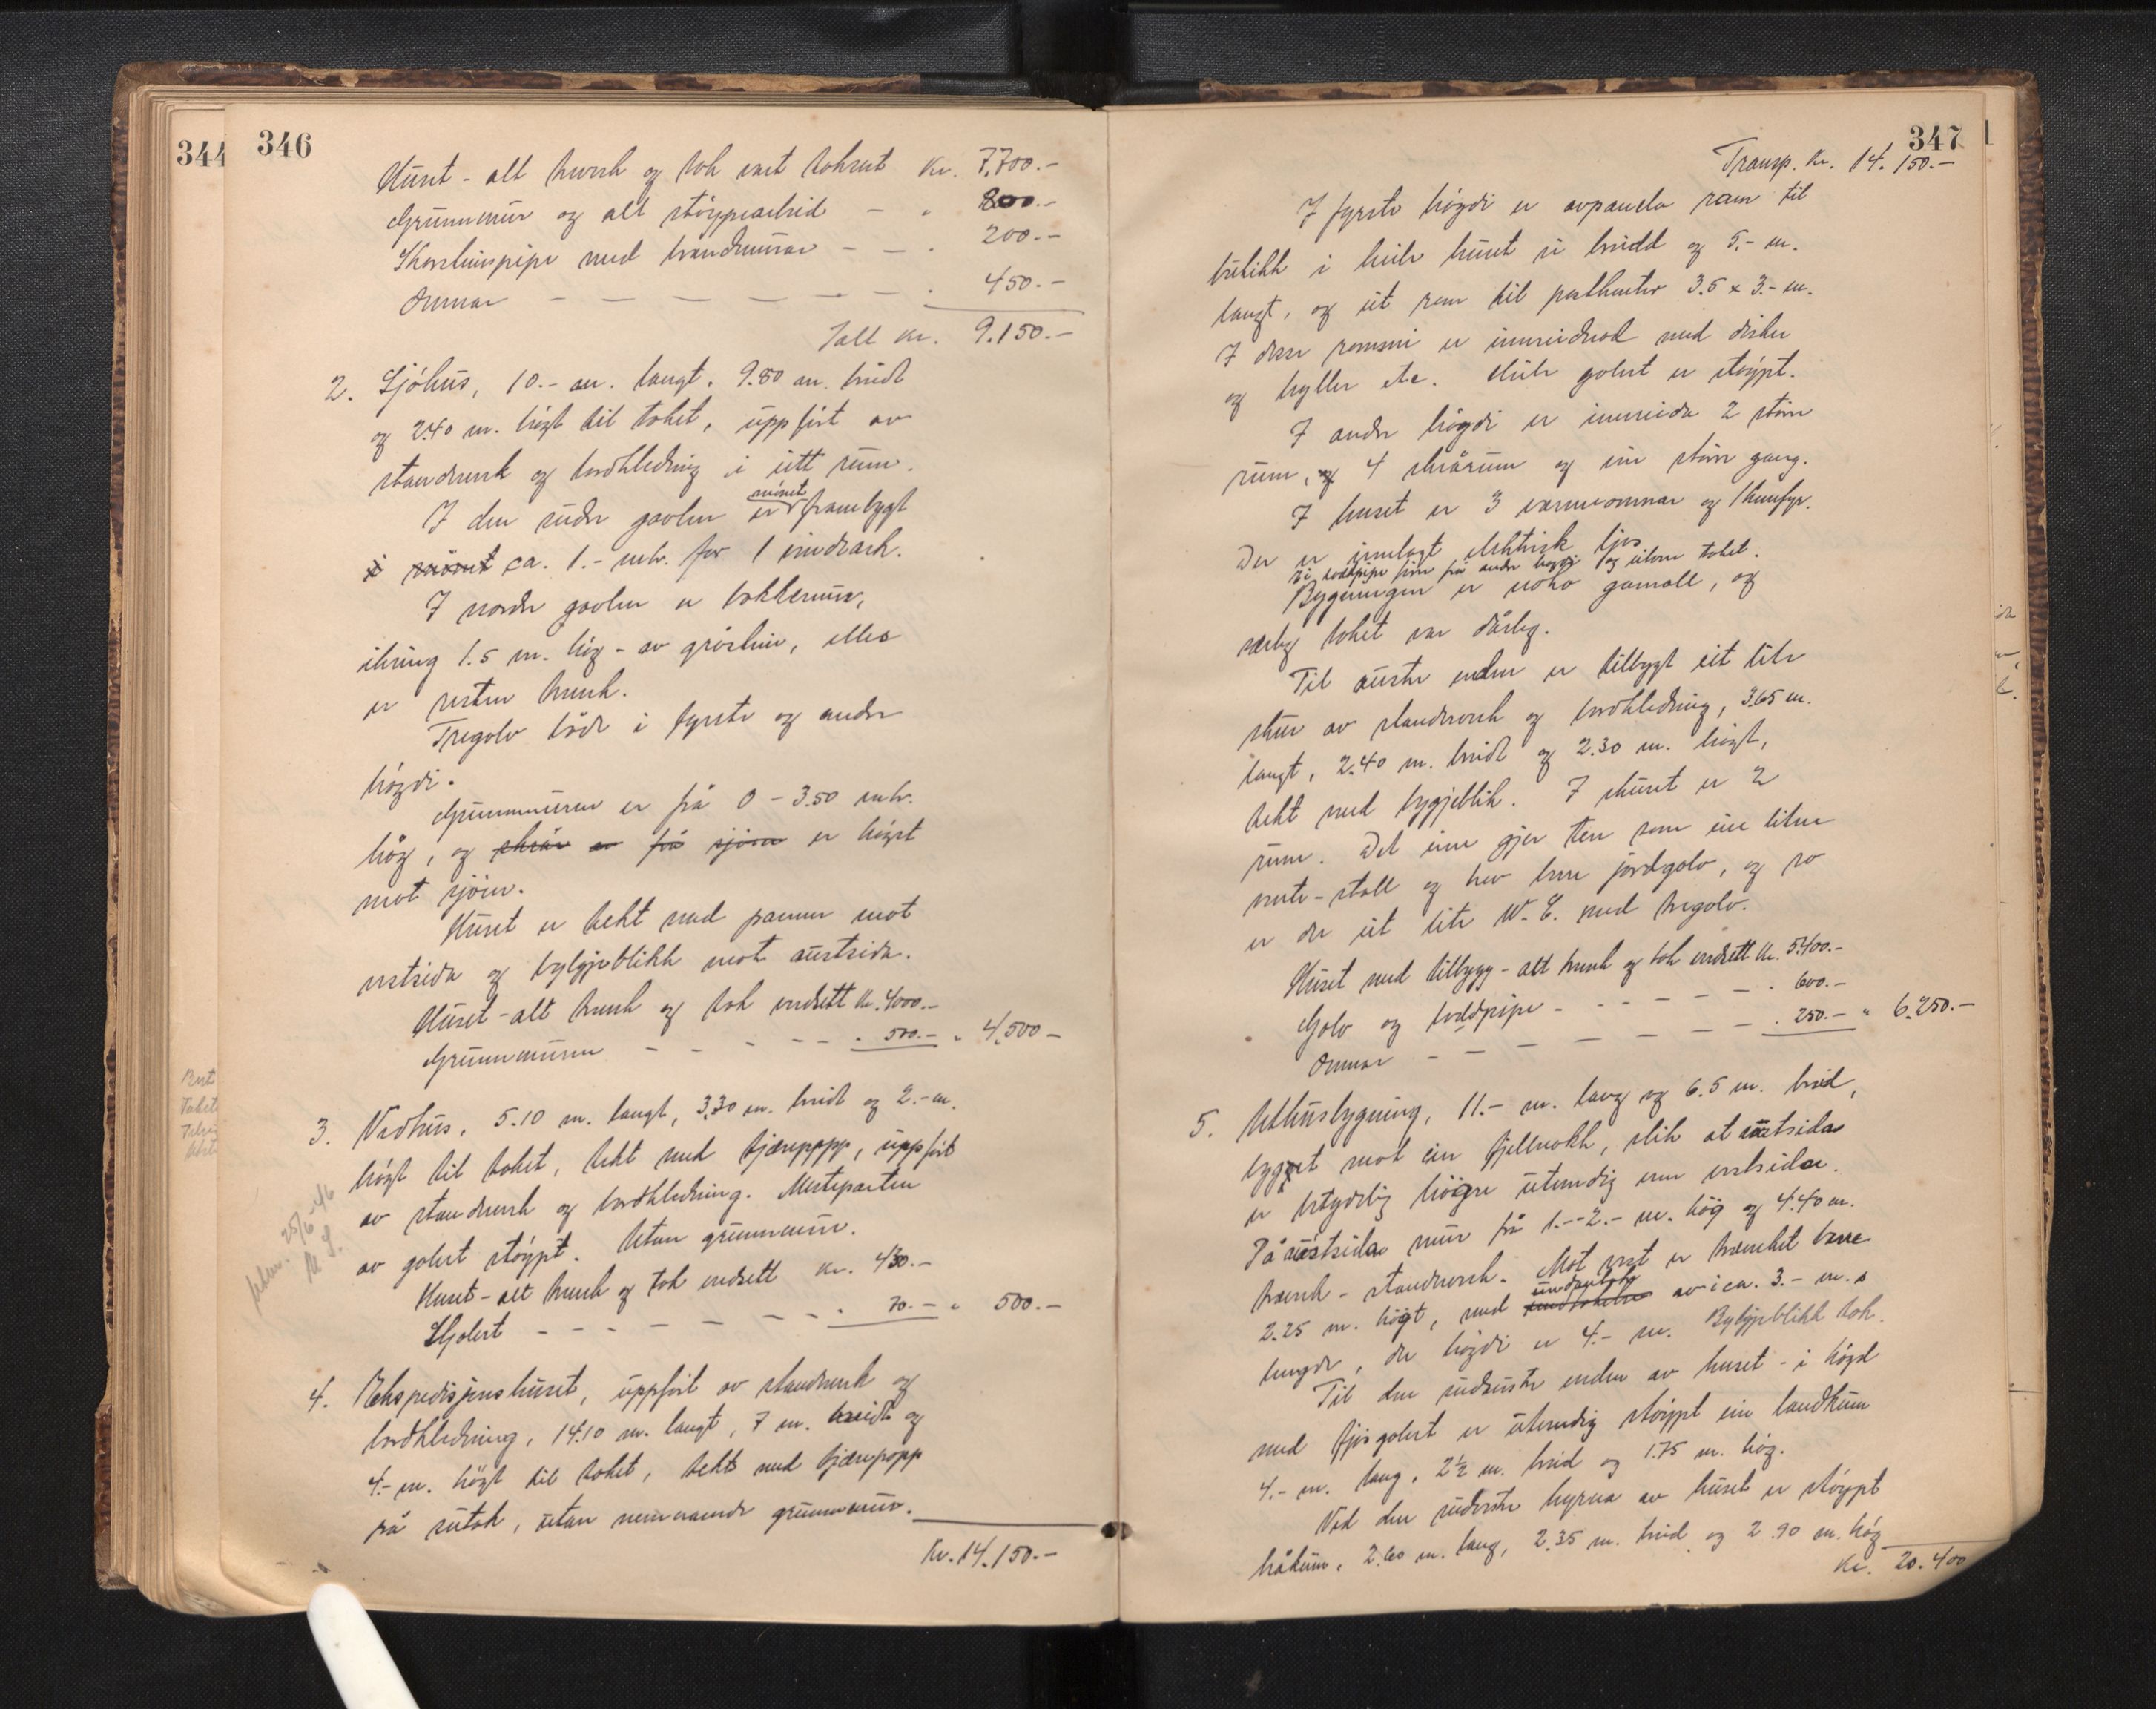 344
346
Huset - alt treverk og tak vart taksert Kr. 7,700.-
Grunnmur og alt støypearbeid - " 800.-
Skorsteinspipe med brandmurar - - " 200.-
Omnar - - - - - - " 450.-
Ialt kr. 9.150.-
2. Sjóhus, 10.- m. langt, 9.80 m. breidt
og 2.40 m. högt til taket, uppfört av
standverk og bordkledning i eitt rum.
I den sudre gavlen er mönet frambygt
i mönet ca. 1.- mtr. for 1 inndrack.
I nordre gavlen er bakkemur,
ikring 1.5 m. hög - av gråstein, elles
er resten treverk.
Tregolv både i fyrste og andre
högdi.
Grunnmuren er frå 0 - 3.50 mtr.
hög, og skrår av frå sjöen er högst
mot sjöen.
Huset er tekt med pannor mot
vestsida og bylgjeblikk mot austsida.
Huset - alt treverk og tak verdsett kr. 4000.-
Grunnmuren - - - - - - " 500.- " 4,500 -
3. Vedhus, 5.10 m. langt, 3,30 m. breidt og 2.- m.
högt til taket, tekt med tjærepapp, uppfört
av standverk og bordkledning. Mesteparten
av golvet støypt. Utan grunnmur.
Huset - alt treverk og tak verdsett kr. 430.-
Golvet - - - - - - - " 70.- " 500.-
4. Ekspedisjonshuset, uppfört av standverk og
bordkledning, 14.10 m. langt, 7 m. breidt og
4.- m. högt til taket, tekt med tjærepapp
på sutak, utan nemnande grunnmur.
Kr. 14.150.-
25/6-46
347
Transp. Kr. 14.150.-
I fyrste högdi er avpanela rom til
butikk i heile huset si breidd og 5.- m.
langt, og eit rom til postkontor 3.5 x 3.- m.
I desse rommi er innreidned med diskar
og hyller etc. Heile golvet er støypt.
I andre högdi er innreida 2 större
rum, og 4 skrårum og ein större gang.
I huset er 3 varmeomnar og 1 komfyr.
Der er innelagt elektrisk ljos
Ei teddpipe fører frå andre högdi og uttover taket.
Bygningen er noko gamall, og
særleg taket var dårleg.
Til austre enden er tilbygt eit lite
skur av standverk og bordkledning, 3.65 m.
langt, 2.40 m. breidt og 2.30 m. högt,
tekt med bygjeblik. I skuret er 2
rum. Det eine gjer ten som ein liten
naute-stall og hev bere jordgolv, og so
er der eit lite W.C. med tregolv.
Huset med tilbygg - alt treverk og tak verdsett kr. 5400.-
Golv og teddpipe - - - - - - " 600.-
Omnar - - - - - - - " 250.- " 6.250.-
5. Uthusbygning, 11.- m. lang og 6.5 m. breid,
bygget mot ein fjellnakk, slik at austsida
er betydelig högre utvendig enn vestsida.
På austsida mur frå 1.--2.- m. hög og 4.40 m.
treverk - standverk. Mot vest er treverket berre
2.25 m. högt, med undantak av i ca. 3.- m. s
lengde, der högdi er 4.- m. Bylgjeblikk tak.
Til den sudaustre enden av huset - i högd
med fjösgolvet er utvendig støypt ein landkum
4.- m. lang, 2½ m. breid og 1.75 m. hög.
Ved den sudvestre hyrna av huset er støypt
håkum, 2.60 m. lang, 2.35 m. breid og 2.90 m. hög
Kr. 20.400